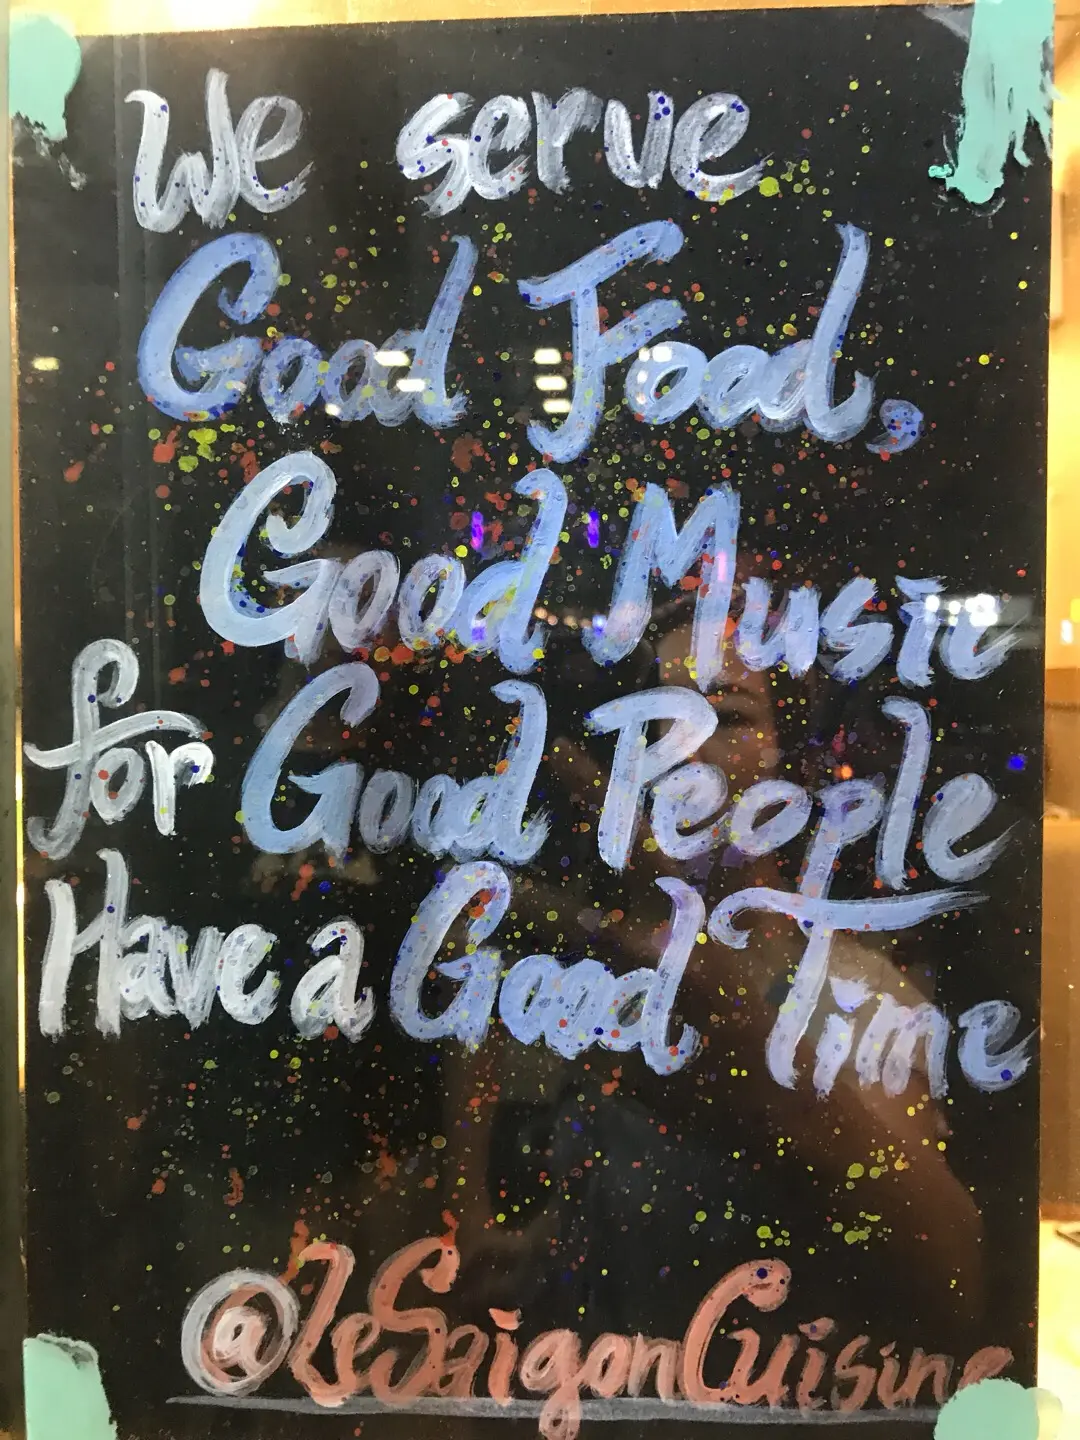 We serve
Good Food,
Good Music
for Good People
Have a Good Time
@LeSaigonCuisine